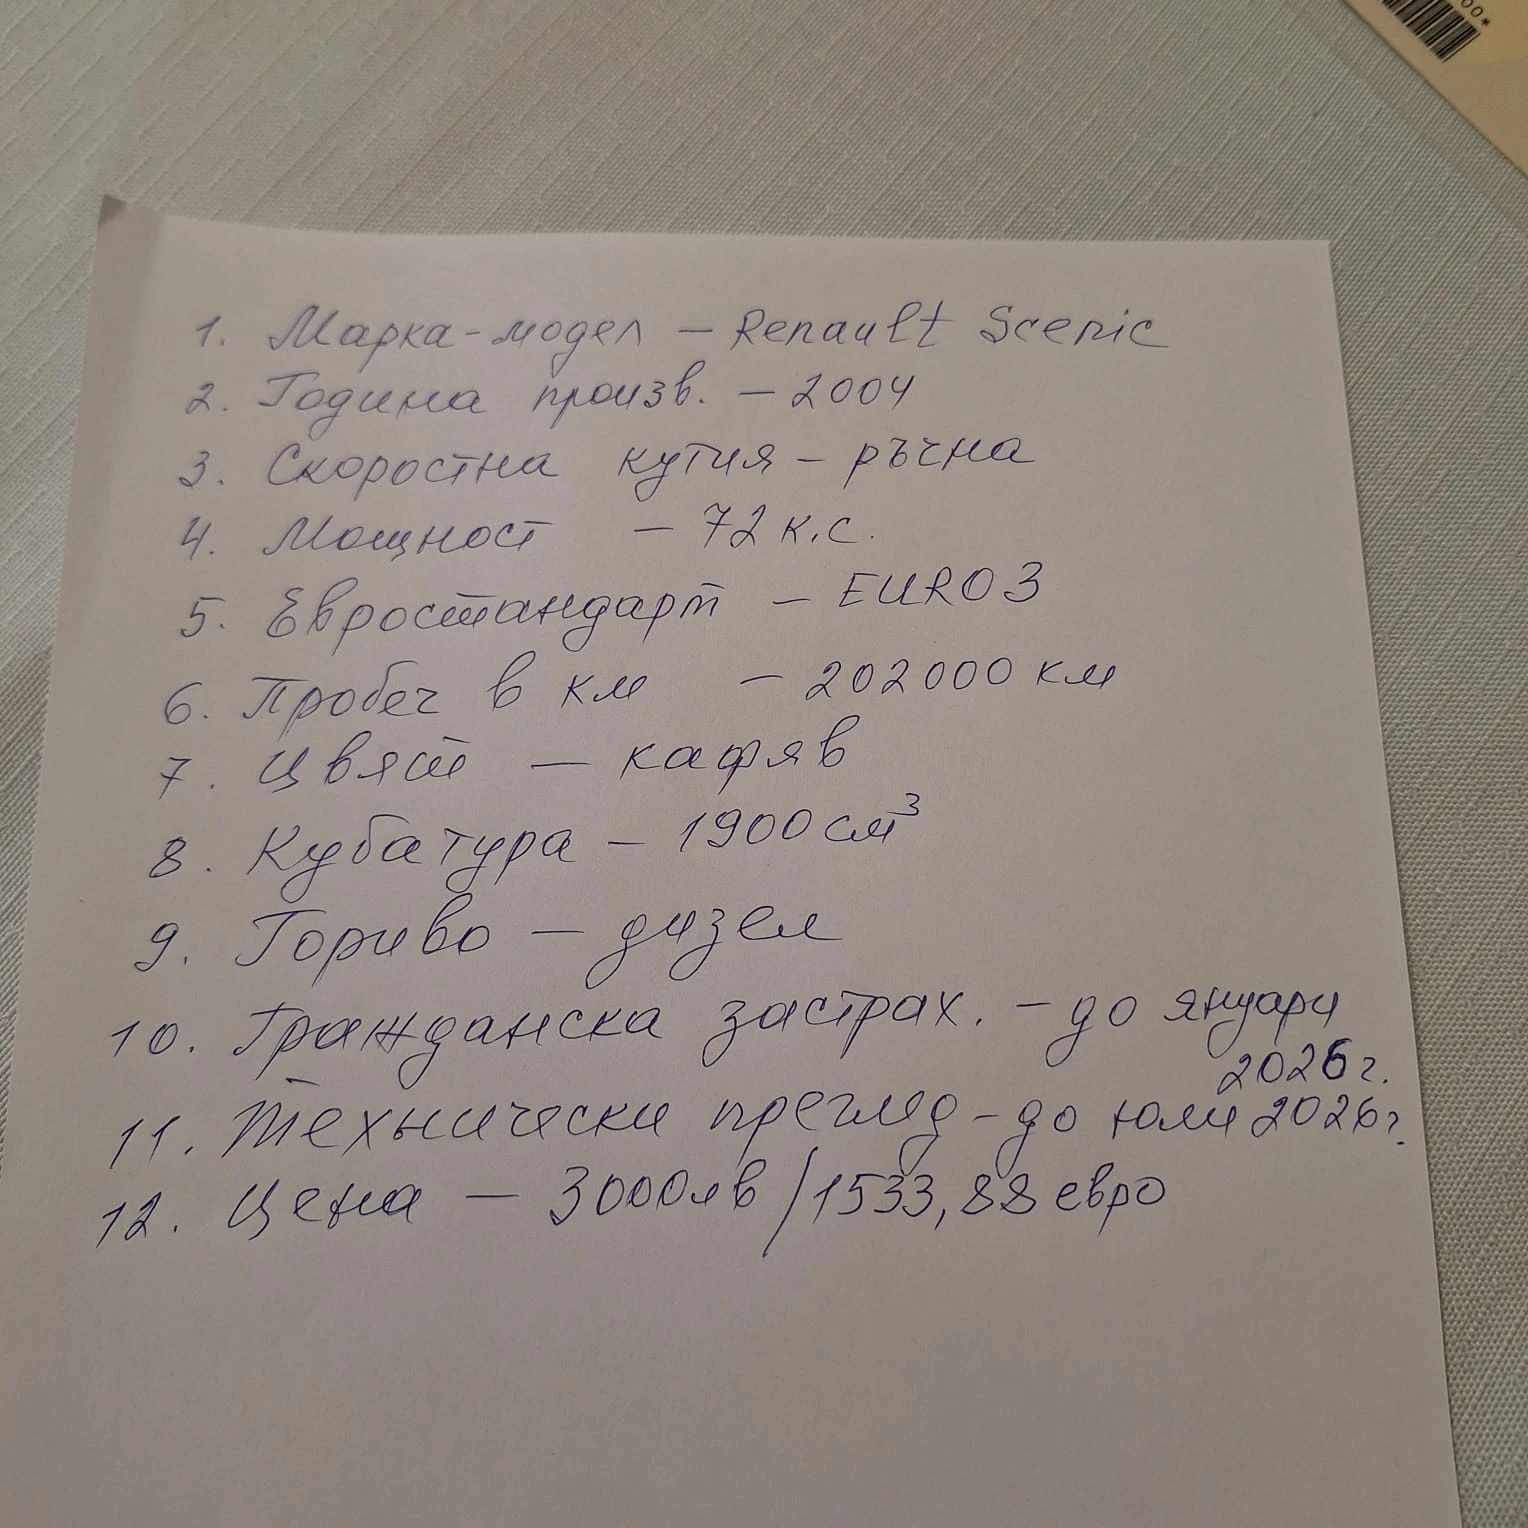 00*
1. Марка-модел – Renault Scenic
2. Година произв. – 2004
3. Скоростна кутия – ръчна
4. Мощност – 72 к.с.
5. Евростандарт – EURO 3
6. Пробег в км – 202000 км
7. Цвят – кафяв
8. Кубатура – 1900 см³
9. Гориво – дизел
10. Гражданска застрах. – до януари
2026 г.
11. Технически преглед – до юли 2026 г.
12. Цена – 3000 лв / 1533,88 евро